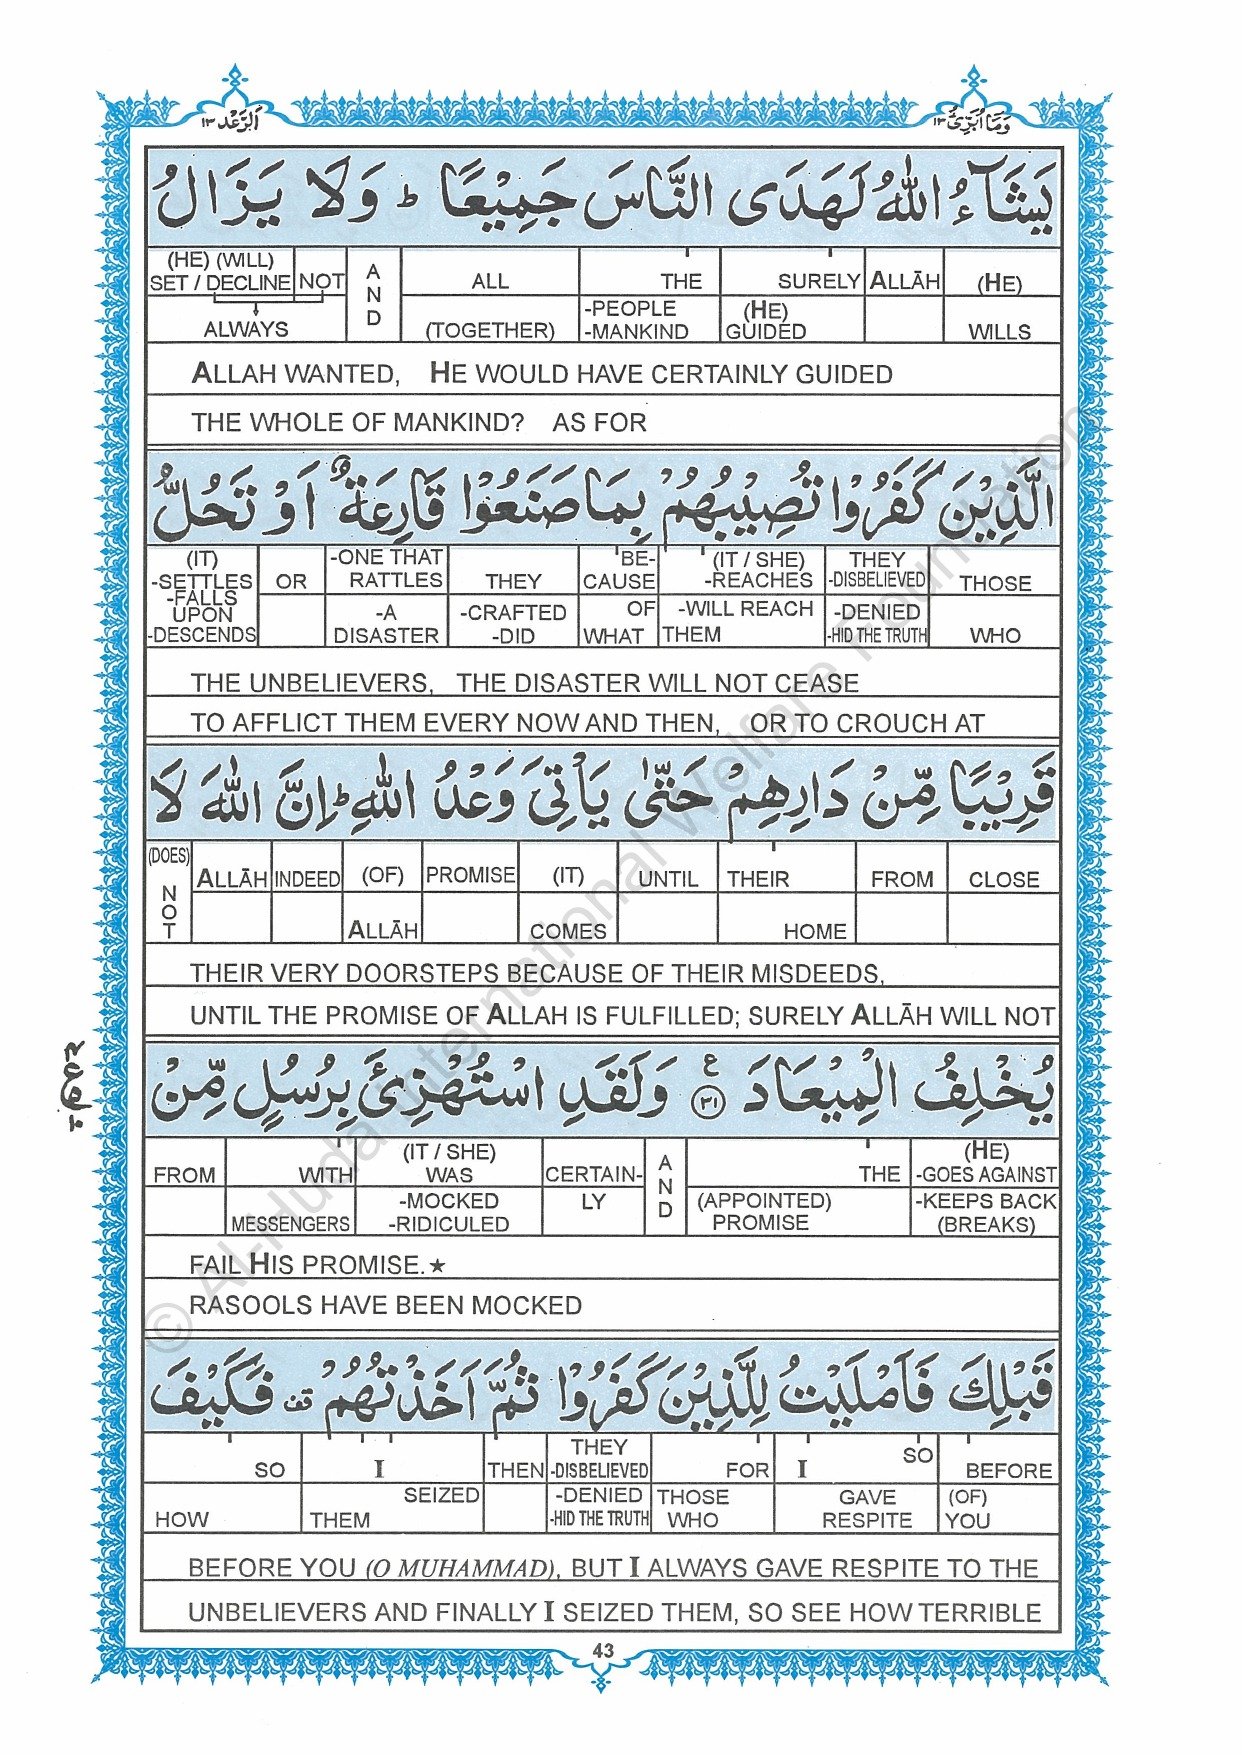 اَلرَّعْد ١٣
وَمَآ اُبَرِّئُ ١٣
يَشَآءُ اللّٰهُ لَهَدَى النَّاسَ جَمِيْعًا ؕ وَلَا يَزَالُ
(HE) (WILL) SET / DECLINE NOT AND ALL THE SURELY ALLĀH (HE)
ALWAYS (TOGETHER) -PEOPLE -MANKIND (HE) GUIDED WILLS
ALLAH WANTED, HE WOULD HAVE CERTAINLY GUIDED
THE WHOLE OF MANKIND? AS FOR
الَّذِيْنَ كَفَرُوْا تُصِيْبُهُمْ بِمَا صَنَعُوْا قَارِعَةٌ اَوْ تَحُلُّ
(IT) -SETTLES -FALLS UPON -DESCENDS OR -ONE THAT RATTLES THEY 'BE-CAUSE (IT / SHE) -REACHES THEY -DISBELIEVED THOSE
-A DISASTER -CRAFTED -DID OF WHAT -WILL REACH THEM -DENIED -HID THE TRUTH WHO
THE UNBELIEVERS, THE DISASTER WILL NOT CEASE
TO AFFLICT THEM EVERY NOW AND THEN, OR TO CROUCH AT
قَرِيْبًا مِّنْ دَارِهِمْ حَتّٰى يَاْتِيَ وَعْدُ اللّٰهِ ؕ اِنَّ اللّٰهَ لَا
(DOES) NOT ALLĀH INDEED (OF) PROMISE (IT) UNTIL THEIR FROM CLOSE
ALLĀH COMES HOME
THEIR VERY DOORSTEPS BECAUSE OF THEIR MISDEEDS,
UNTIL THE PROMISE OF ALLAH IS FULFILLED; SURELY ALLĀH WILL NOT
يُخْلِفُ الْمِيْعَادَ ۝٣١ ع وَلَقَدِ اسْتُهْزِئَ بِرُسُلٍ مِّنْ
FROM WITH (IT / SHE) WAS CERTAIN- AND THE (HE) -GOES AGAINST
MESSENGERS -MOCKED -RIDICULED LY (APPOINTED) PROMISE -KEEPS BACK (BREAKS)
FAIL HIS PROMISE.★
RASOOLS HAVE BEEN MOCKED
قَبْلِكَ فَاَمْلَيْتُ لِلَّذِيْنَ كَفَرُوْا ثُمَّ اَخَذْتُهُمْ قف فَكَيْفَ
SO I THEN THEY -DISBELIEVED FOR I SO BEFORE
HOW SEIZED THEM -DENIED -HID THE TRUTH THOSE WHO GAVE RESPITE (OF) YOU
BEFORE YOU (O MUHAMMAD), BUT I ALWAYS GAVE RESPITE TO THE
UNBELIEVERS AND FINALLY I SEIZED THEM, SO SEE HOW TERRIBLE
43
© Al-Huda International Welfare Foundation